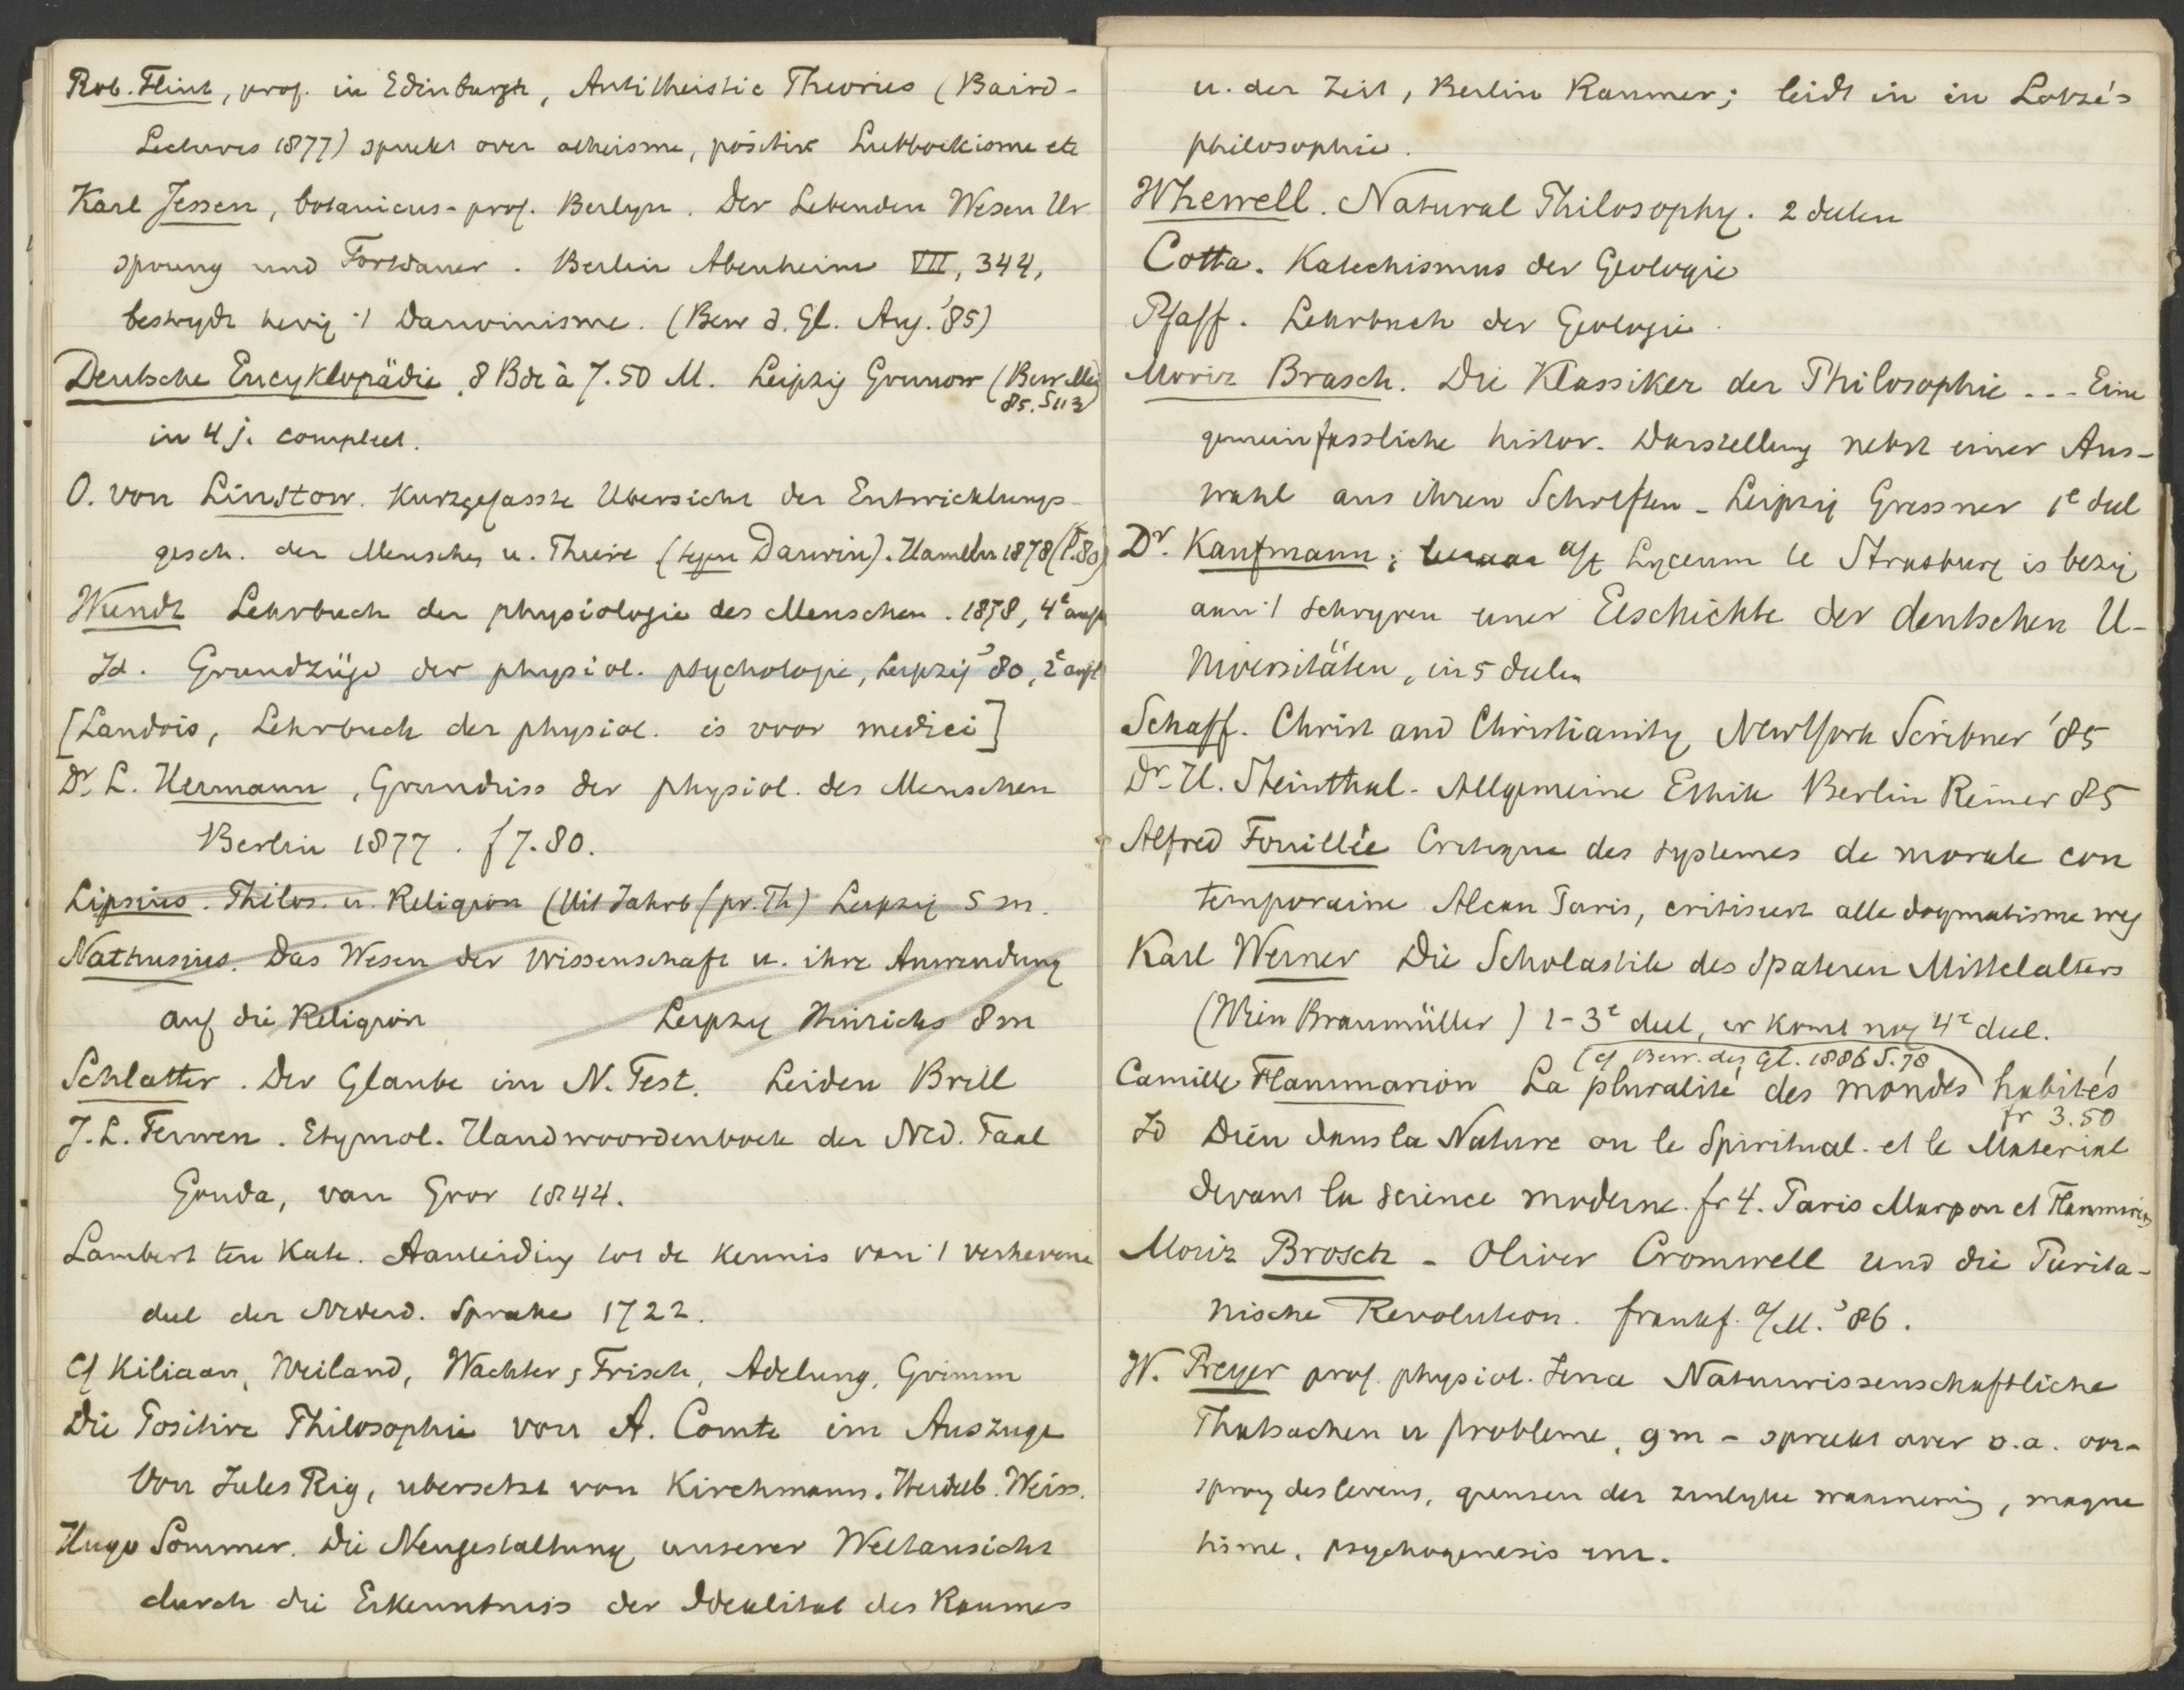 Rob. Flint, prof. in Edinburgh, Antitheistic Theories (Baird-
Lectures 1877) spreekt over atheisme, positiv Lubbockisme etc
Karl Jessen, botanicus-prof. Berlyn. Der Lebenden Wesen Ur
sprung und Fortdauer. Berlin Abenheim VII, 344,
bestrydt hevig 't Darwinisme. (Bew d. Gl. Aug. '85)
Deutsche Encyklopädie, 8 Bde à 7.50 M. Leipzig Grunow (Bew. Mei
85. S 113)
in 4 j. compleet.
O. von Linstow. Kurzgefasste Ubersicht der Entwicklungs-
gesch. der Menschen u. Thiere (tegen Darwin). Hameln 1878 (1.80)
Wundt Lehrbuch der physiologie des Menschen. 1878, 4e aufl
Id. Grundzüge der physiol. psychologie, Leipzig '80, 2e aufl
[Landois, Lehrbuch der physiol. is voor medici]
Dr. L. Hermann, Grundriss der physiol. des Menschen
Berlin 1877. f 7.80.
Lipsius. Philos. u. Religion (Uit Jahrb f pr. Th) Leipzig 5 m.
Nathusius. Das Wesen der Wissenschaft u. ihre Anwendung
auf die Religion Leipzig Hinrichs 8 m
Schlatter. Der Glaube im N. Test. Leiden Brill
J. L. Terwen. Etymol. Handwoordenboek der Ned. Taal
Gouda, van Goor 1844.
Lambert ten Kate. Aanleiding tot de kennis van 't verhevene
deel der Nederd. Sprake 1722.
Cf Kiliaan, Weiland, Wachter, Frisch, Adelung, Grimm
Die Positive Philosophie von A. Comte im Auszuge
Von Jules Rig, ubersetzt von Kirchmann. Heidelb. Weiss.
Hugo Sommer. Die Neugestaltung unserer Weltansicht
durch die Erkenntniss der Idealitat des Raumes
u. der Zeit, Berlin Raumer; leidt in in Lotze's
philosophie.
Whewell. Natural Philosophy. 2 deelen
Cotta. Katechismus der Geologie
Pfaff. Lehrbuch der Geologie.
Moriz Brasch. Die Klassiker der Philosophie --- Eine
gemeinfassliche histor. Darstellung nebst einer Aus-
wahl aus ihren Schriften - Leipzig Gressner 1e deel
Dr. Kaufmann; leeraar a/h Lyceum te Strasburg is bezig
aan 't schryven eener Geschichte der deutschen U-
niversitäten, in 5 deelen
Schaff. Christ and Christianity New York Scribner '85
Dr. H. Steinthal. Allgemeine Ethik Berlin Reimer 85
Alfred Fouillée Critique des systemes de morale con
temporaine Alcan Paris, critiseert alle dogmatisme weg
Karl Werner Die Scholastik des spateren Mittelalters
(Wien Braumüller) 1-3e deel, er komt nog 4e deel.
(cf Bew. des Gl. 1886 S. 78
Camille Flammarion La pluralité des mondes habités
fr 3.50
Id Dieu dans la Nature ou le Spiritual. et le Material
devant la science moderne. fr 4. Paris Marpon et Flammarion
Moriz Brosch - Oliver Cromwell und die Purita-
nische Revolution. frankf. a/M. '86.
W. Preyer prof. physiol. Jena Naturwissenschaftliche
Thatsachen u probleme, 9 m - spreekt over o.a. oor-
sprong des levens, grenzen der zinlyke waarneming, magne
tisme, psychogenesis enz.